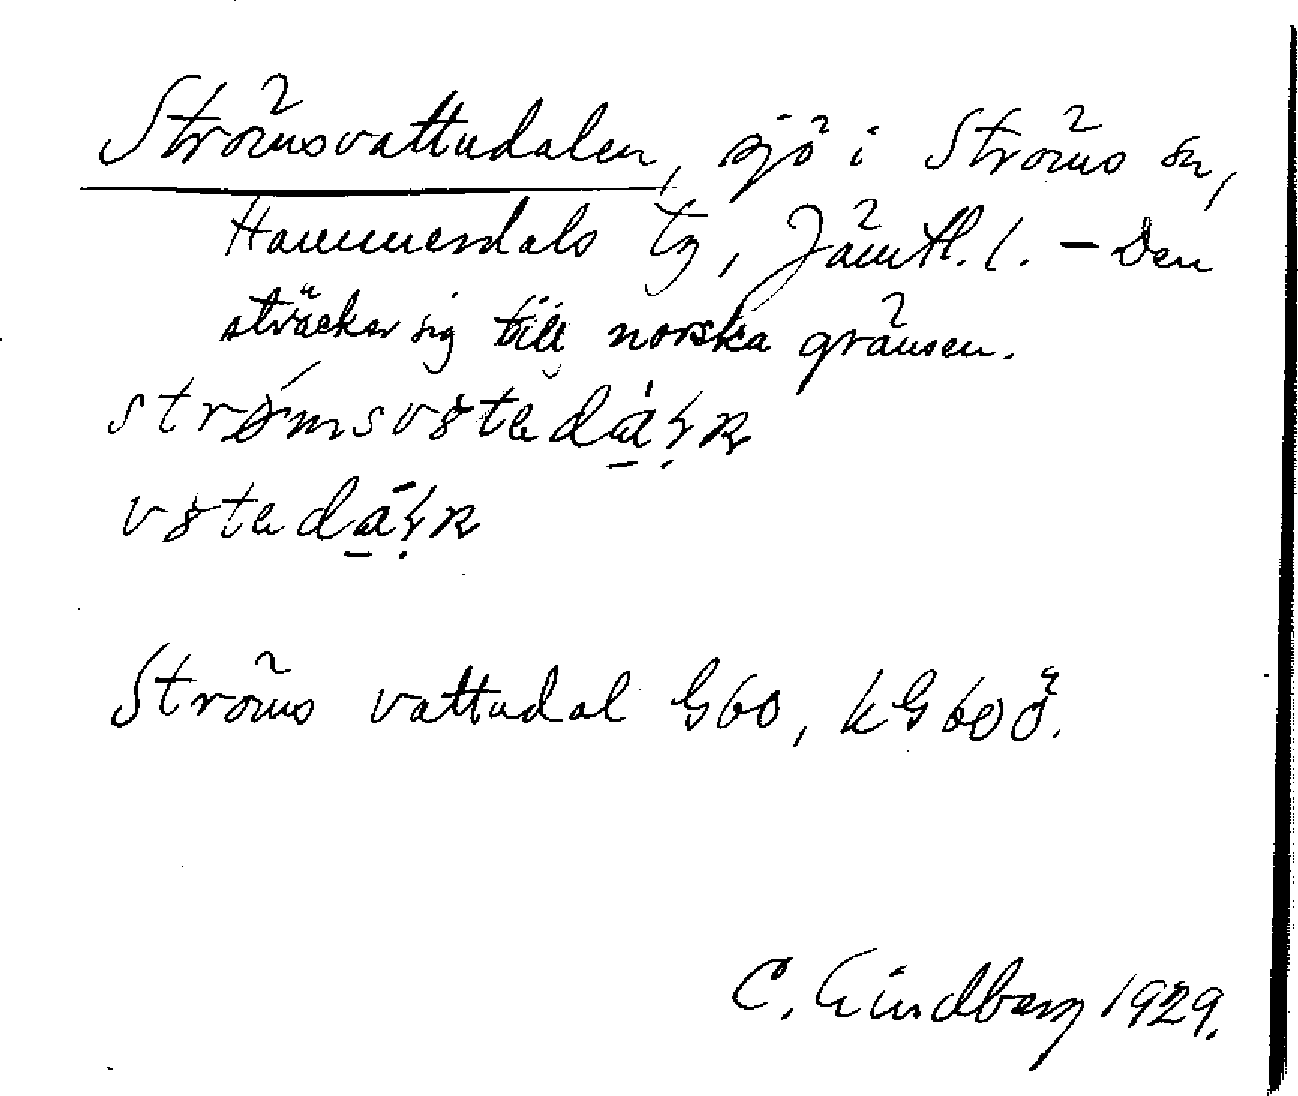 Strömsvattudalen, sjö i Ströms sn,
Hammerdals tg, Jämtl. l. – Den
sträcker sig till norska gränsen.
Ströms vattudal G60, kG60ö.
C. Lindberg 1929.